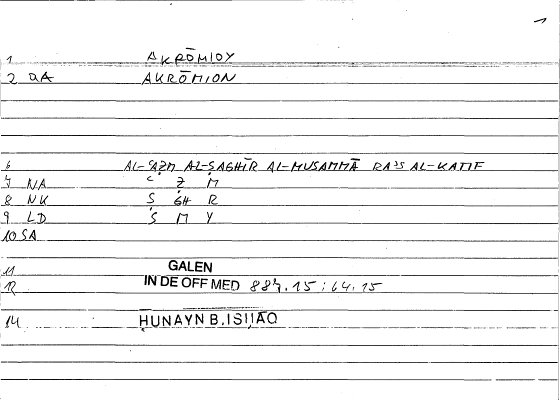 1
1 AKRŌMIOY
2 aA AKRŌMION
6 AL-ʿAẒM AL-ṢAGHĪR AL-MUSAMMĀ RAʾS AL-KATIF
7 NA ʿ Ẓ M
8 NK Ṣ GH R
9 LD S M Y
10 SA
11 GALEN
12 IN DE OFF MED 884.15 : 64.15
14 ḤUNAYN B.ISḤĀQ